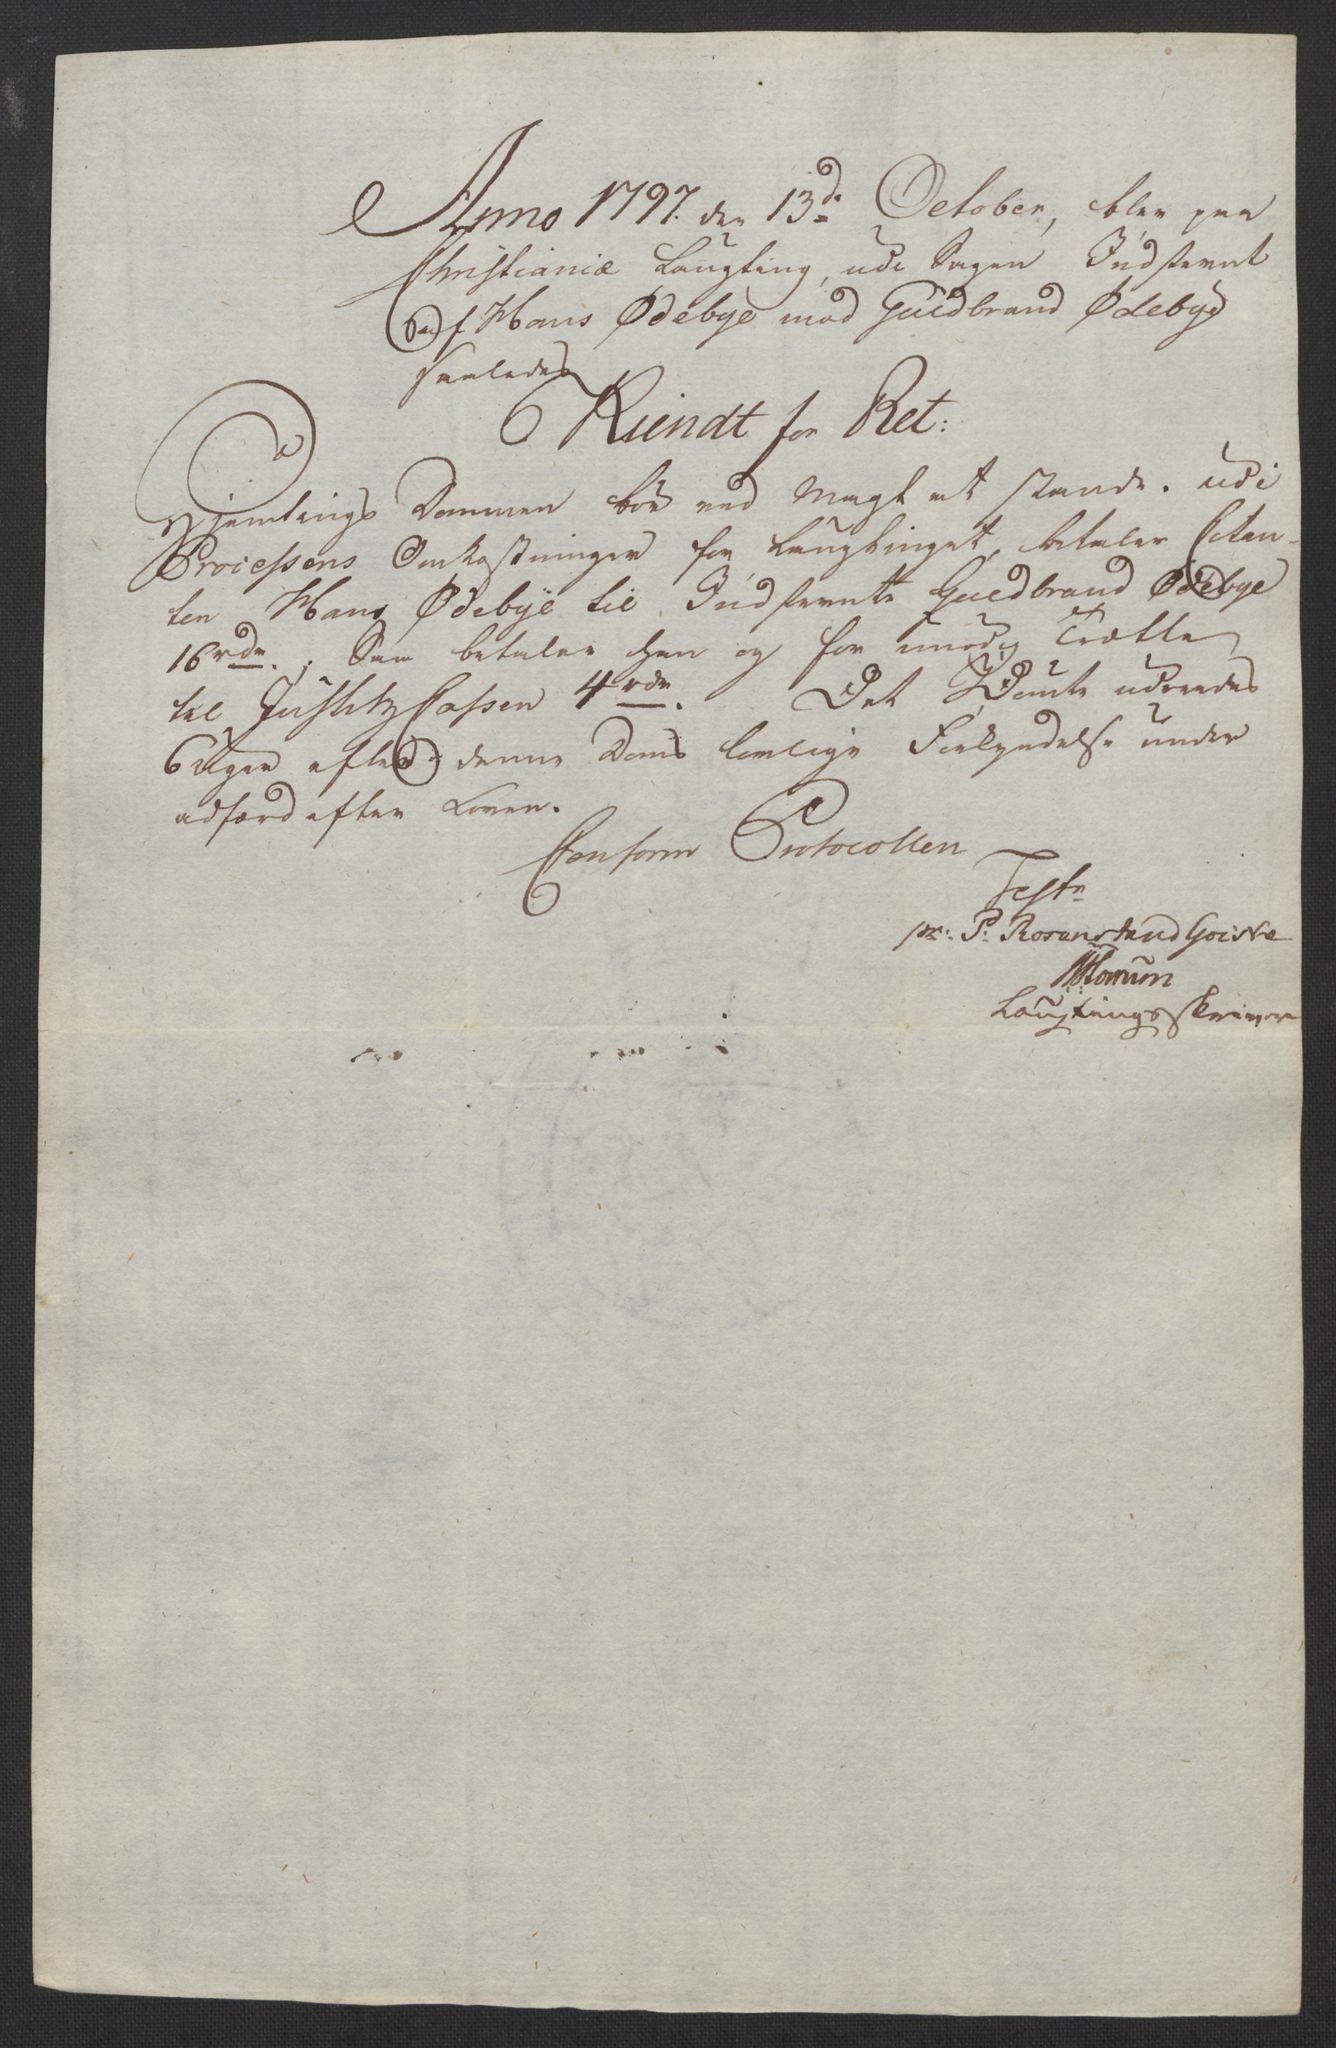 Anno 1797. den 13de October, blev paa
Christianiæ Laugting, udi Sagen Indstevnt
af Hans Ødebye mod Guldbrand Ødebye
saaledes
Kiendt for Ret:
Hjemtings Dommen bør ved Magt at stande. udi
Processens Omkostninger for Laugtinget, betaler Citan-
ten Hans Ødebye til Indstevnte Guldbrand Ødebye
16 rdr. Saa betaler han og for unødig Trætte
til Justitz Cassen 4 rdr. Det Idømte udreedes
6 Uger efter denne Doms lovlige Forkyndelse under
adfærd efter Loven.
Conform Protocollen
Teste
pr: P: Rosenstand Goiske
Laugtings skriver